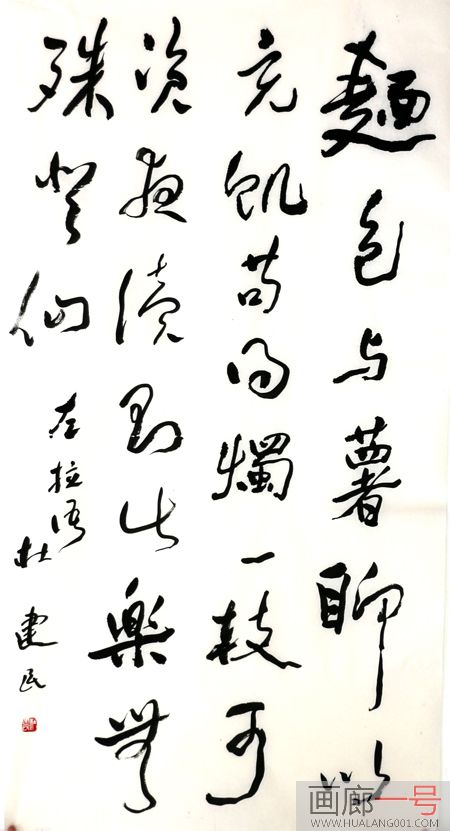 麵包与薯聊以
充飢苟得燭一枝可
资夜读即此樂無
殊登仙
左拉语
杜建民
画廊一号
WWW.HUALANG001.COM